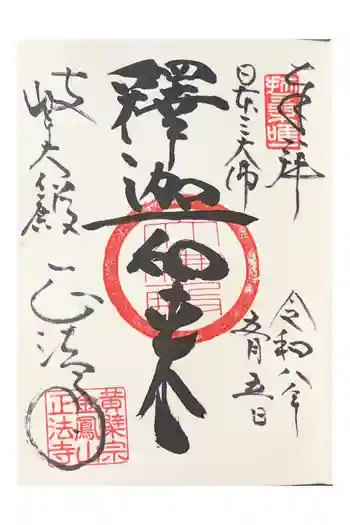 奉拝
日本三大佛
令和八年
五月五日
釋迦如来
岐阜大仏殿
正法寺
黄檗宗
金鳳山
正法寺